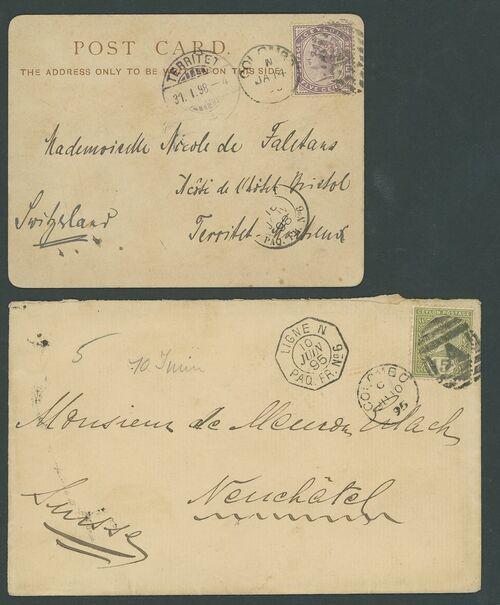 POST CARD.
THE ADDRESS ONLY TO BE ON THIS SIDE
TERRITET
31. I. 98 - 4
COLOMBO
N
JA 14
Mademoiselle Nicole de Falstans
Hôtel Bristol
Switzerland
Territet
PAQ. FR.
LIGNE N
10
JUIN
95
PAQ. FR. Nº 9
CEYLON POSTAGE
COLOMBO
C
10
95
5
10 Juin
Monsieur de Meuron
Neuchâtel
Suisse